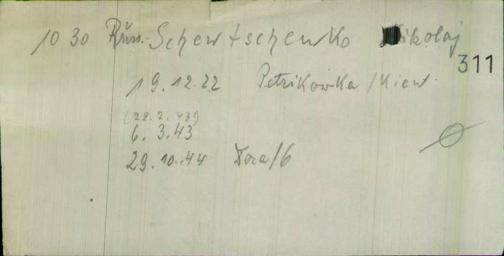 10 30 Russ. Schewtschenko Nikolaj
311
19.12.22 Petrikowka/Kiew.
(28.2.43)
6. 3.43
29.10.44 Dora/6